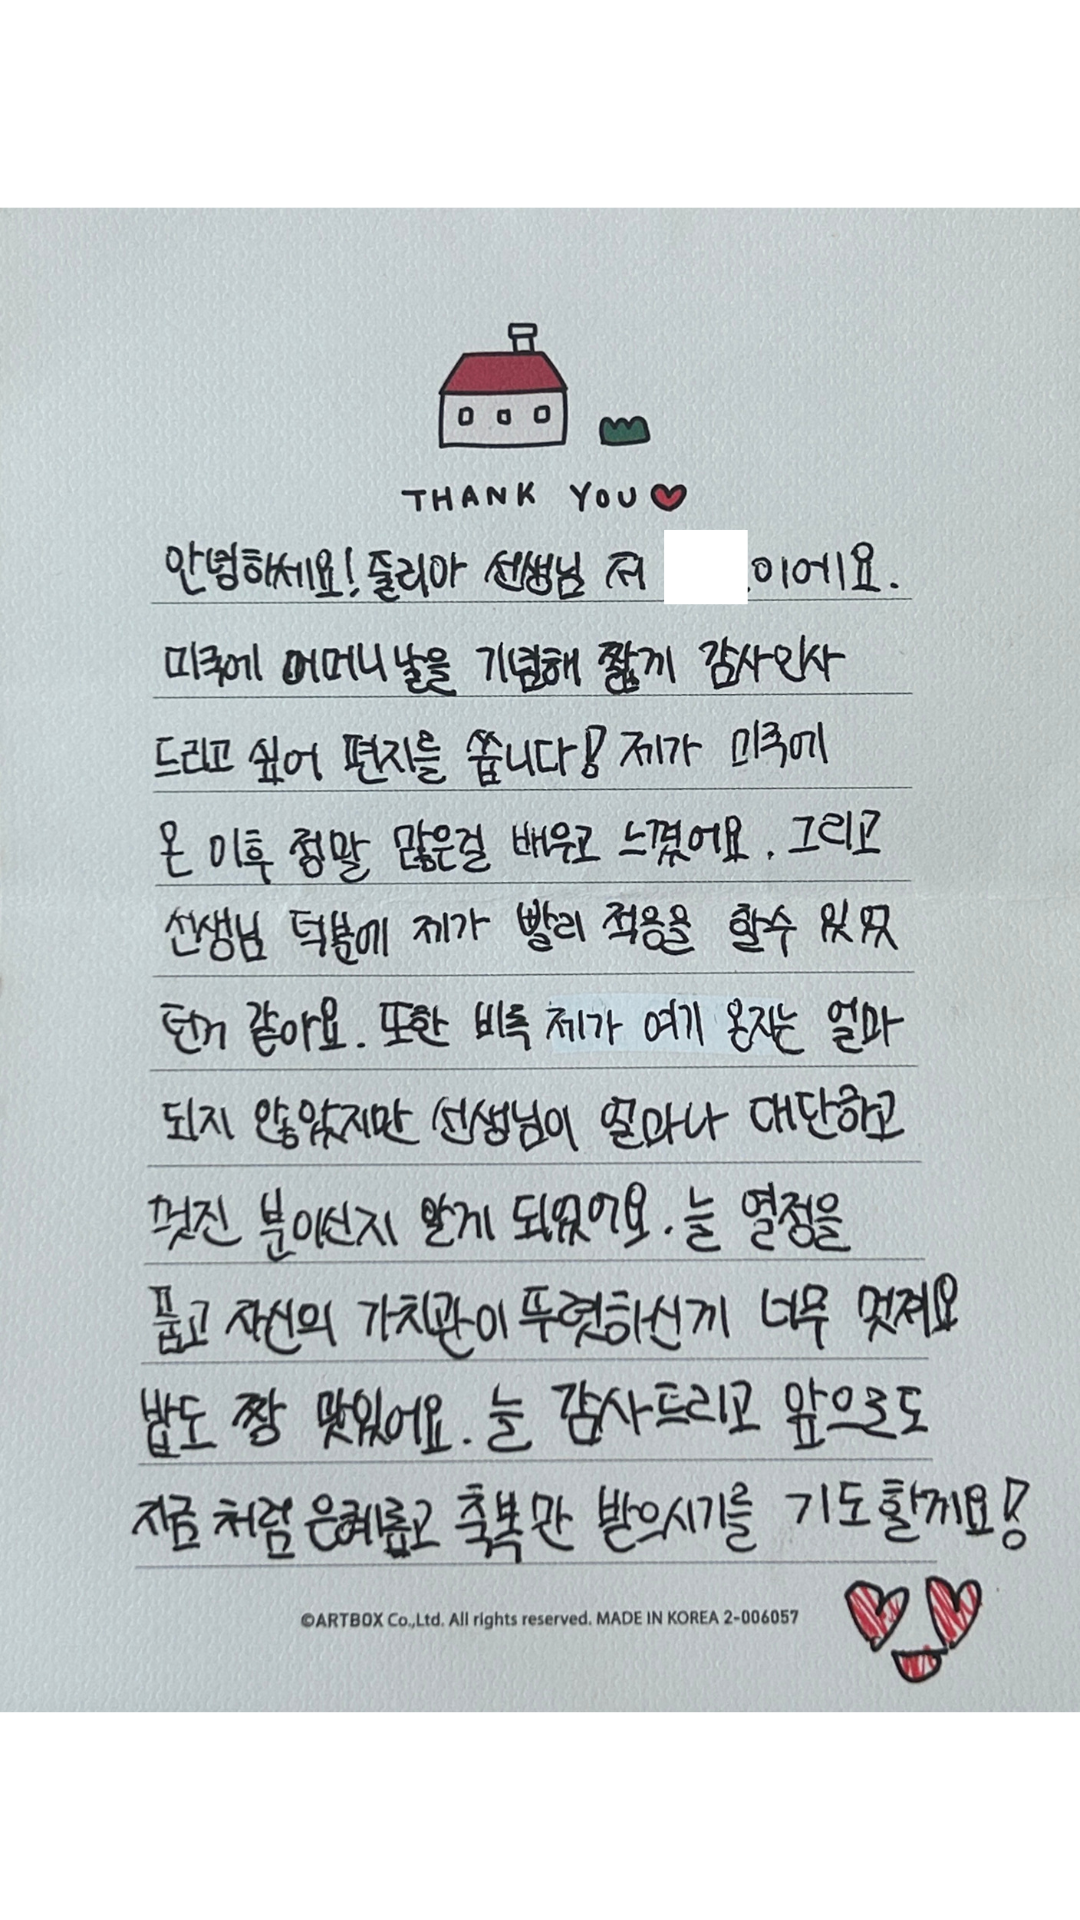 THANK YOU
안녕하세요! 줄리아 선생님 저 이에요.
미국에 어머니날을 기념해 짧게 감사인사
드리고 싶어 편지를 씁니다! 제가 미국에
온 이후 정말 많은걸 배우고 느꼈어요. 그리고
선생님 덕분에 제가 빨리 적응을 할수 있었
던거 같아요. 또한 비록 제가 여기 온지는 얼마
되지 않았지만 선생님이 얼마나 대단하고
멋진 분이신지 알게 되었어요. 늘 열정을
품고 자신의 가치관이 뚜렷하신게 너무 멋져요
밥도 짱 맛있어요. 늘 감사드리고 앞으로도
지금처럼 은혜롭고 축복만 받으시기를 기도할게요!
©ARTBOX Co.,Ltd. All rights reserved. MADE IN KOREA 2-006057